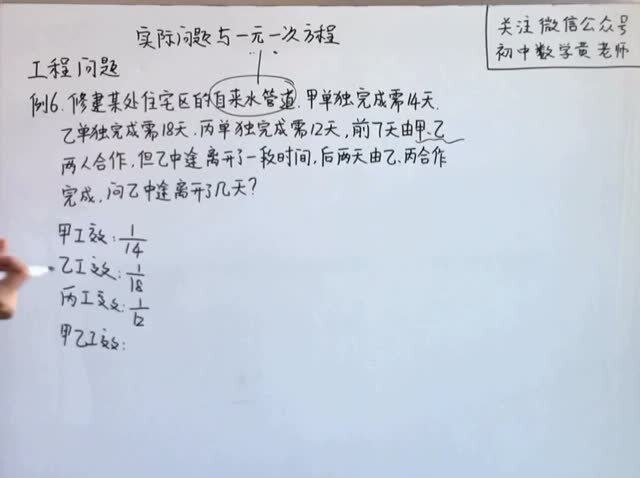 实际问题与一元一次方程
关注微信公众号
初中数学黄老师
工程问题
例6.修建某处住宅区的自来水管道.甲单独完成需14天.
乙单独完成需18天.丙单独完成需12天,前7天由甲、乙
两人合作,但乙中途离开了一段时间,后两天由乙、丙合作
完成,问乙中途离开了几天?
甲工效:1/14
乙工效:1/18
丙工效:1/12
甲乙工效: